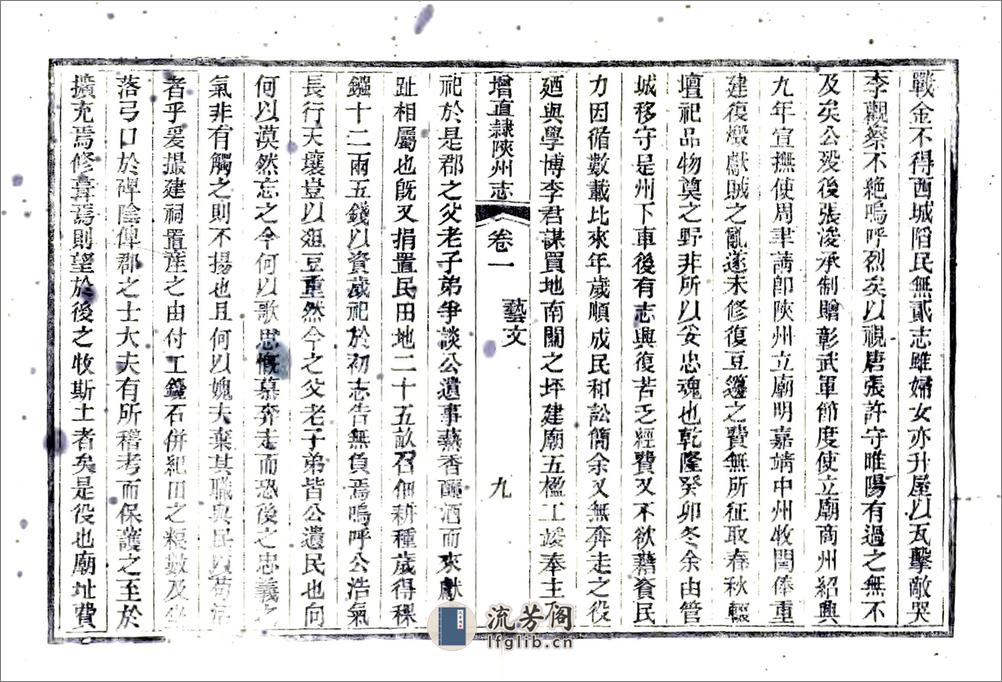 戰金不得西城陷民無貳志雖婦女亦升屋以瓦擊敵哭
李觀察不絶嗚呼烈矣以視唐張許守睢陽有過之無不
及矣公殁後張浚承制贈彰武軍節度使立廟商州紹興
九年宣撫使周聿請卽陜州立廟明嘉靖中州牧閆俸重
建復燬獻賊之亂遂未修復豆籩之費無所征取春秋輒
壇祀品物奠之野非所以妥忠魂也乾隆癸卯冬余由管
城移守是州下車後有志興復苦乏經費又不欲藉資民
力因循數載比來年歲順成民和訟簡余又無奔走之役
廼與學博李君謀買地南關之坪建廟五楹工竣奉主
增直隸陜州志 卷一 藝文 九
祀於是郡之父老子弟爭談公遺事爇香釃酒而來獻
趾相屬也旣又捐置民田地二十五畝召佃耕種歲得稞
鏹十二兩五錢以資歲祀於初志告無負焉嗚呼公浩氣
長行天壤豈以俎豆重然今之父老子弟皆公遺民也向
何以漠然忘之今何以歌思慨慕奔走而恐後之忠義之
氣非有觸之則不揚也且何以媿夫棄其職與民以苟活
者乎爰撮建祠置産之由付工鐫石併紀田之糧數及坐
落弓口於碑陰俾郡之士大夫有所稽考而保護之至於
擴充焉修葺焉則望於後之牧斯土者矣是役也廟址費
流芳閣
lfglib.cn